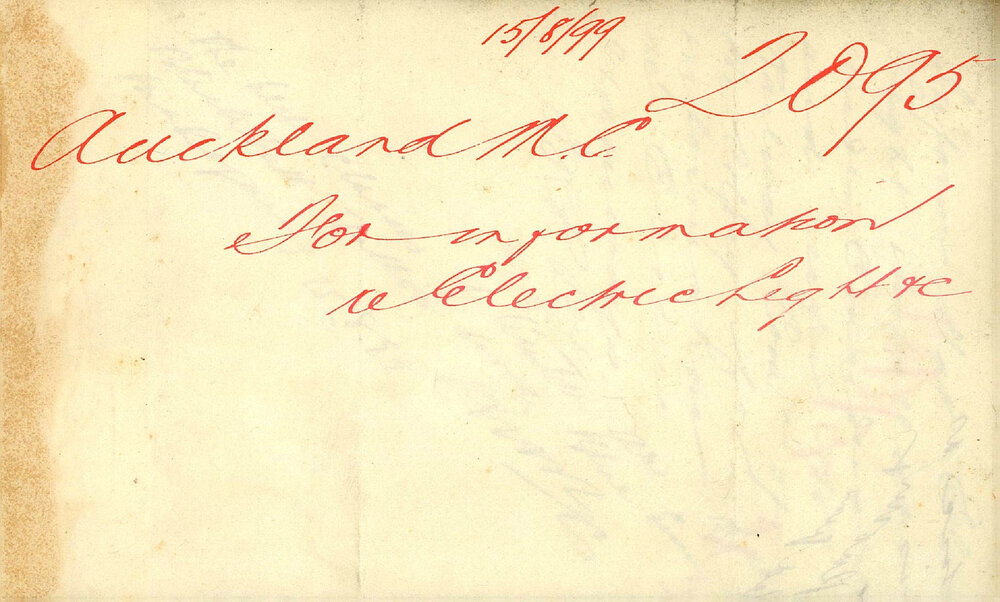 15/8/99
2095
Auckland M.C.
For information
re Electric Light &c